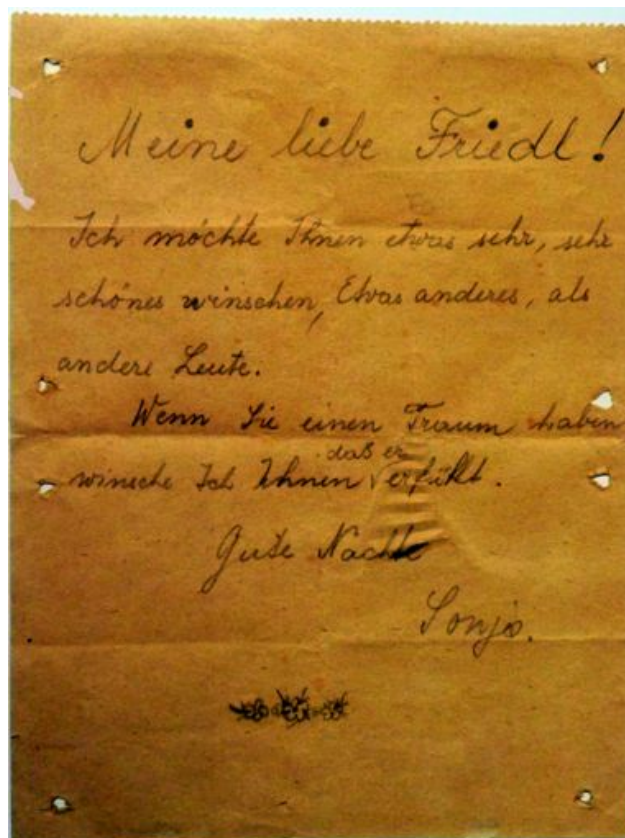 Meine liebe Friedl!
Ich möchte Ihnen etwas sehr, sehr
schönes winschen, Etwas anderes, als
andere Leute.
Wenn Sie einen Traum haben
daß er
winsche Ich Ihnen erfühlt.
Gute Nacht
Sonja.